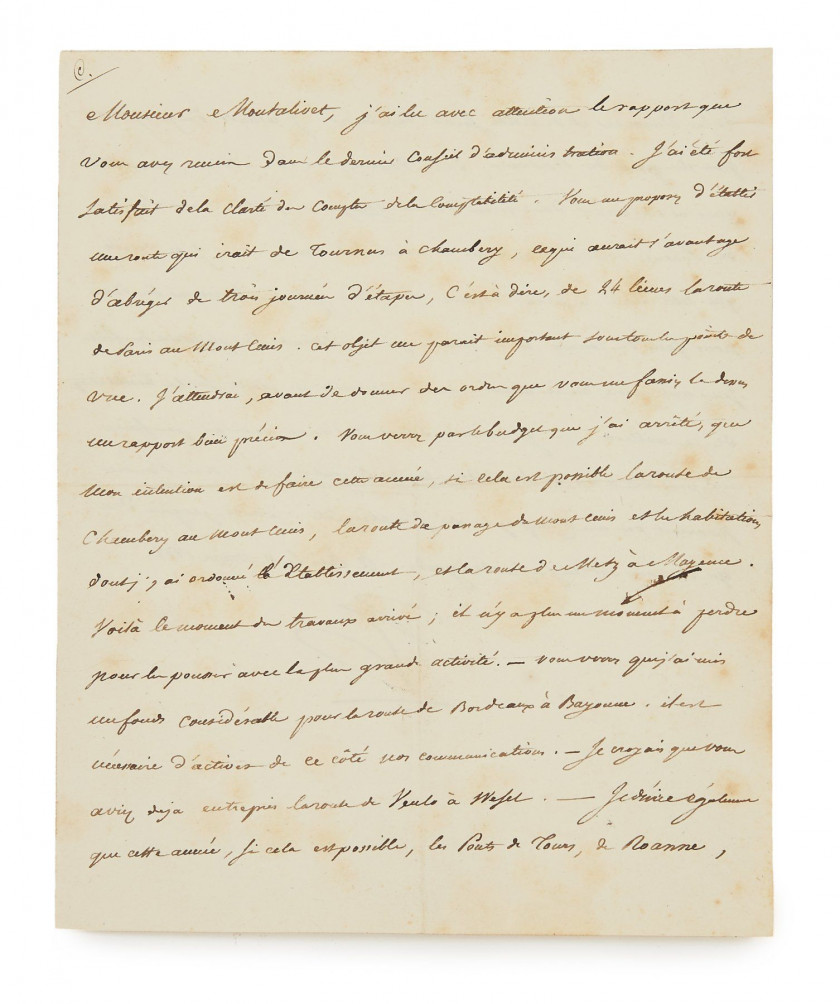 C.
Monsieur Montalivet, j'ai lu avec attention le rapport que
vous avez remis dans le dernier Conseil d'adminis tration. J'ai été fort
satisfait de la clarté des Comptes de la Comptabilité. Vous me proposez d'établir
une route qui irait de Tournus à Chambery, ce qui aurait l'avantage
d'abréger de trois journées d'étapes, C'est à dire, de 24 lieues la route
de Paris au Mont Cenis. cet objet me parait important sous tous les points de
vue. J'attendrai, avant de donner des ordres que vous me fassiez là dessus
un rapport bien précis. Vous verrez par le budget que j'ai arrêté, que
mon intention est de faire cette année, si cela est possible la route de
Chambery au Mont Cenis, la route du passage du Mont Cenis et les habitations
dont j'y ai ordonné l'Etablissement, et la route de Metz à Mayence.
Voilà le moment des travaux arrivé; il n'y a plus un moment à perdre
pour les pousser avec la plus grande activité. — Vous verrez que j'ai mis
un fonds considérable pour la route de Bordeaux à Bayonne. il est
nécessaire d'activer de ce côté nos communications. — Je croyais que vous
aviez déja entrepris la route de Venlo à Wesel. — Je désire également
que cette année, si cela est possible, les Ponts de Tours, de Roanne,